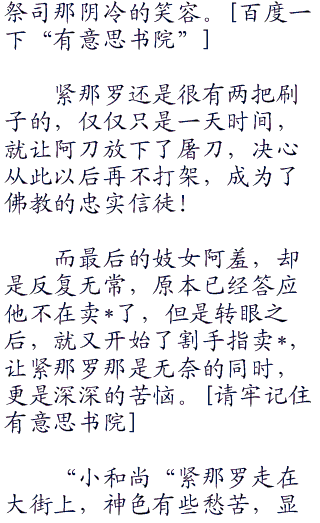 祭司那阴冷的笑容。[百度一
下“有意思书院”]
紧那罗还是很有两把刷
子的，仅仅只是一天时间，
就让阿刀放下了屠刀，决心
从此以后再不打架，成为了
佛教的忠实信徒！
而最后的妓女阿羞，却
是反复无常，原本已经答应
他不在卖*了，但是转眼之
后，就又开始了割手指卖*，
让紧那罗那是无奈的同时，
更是深深的苦恼。[请牢记住
有意思书院]
“小和尚“紧那罗走在
大街上，神色有些愁苦，显